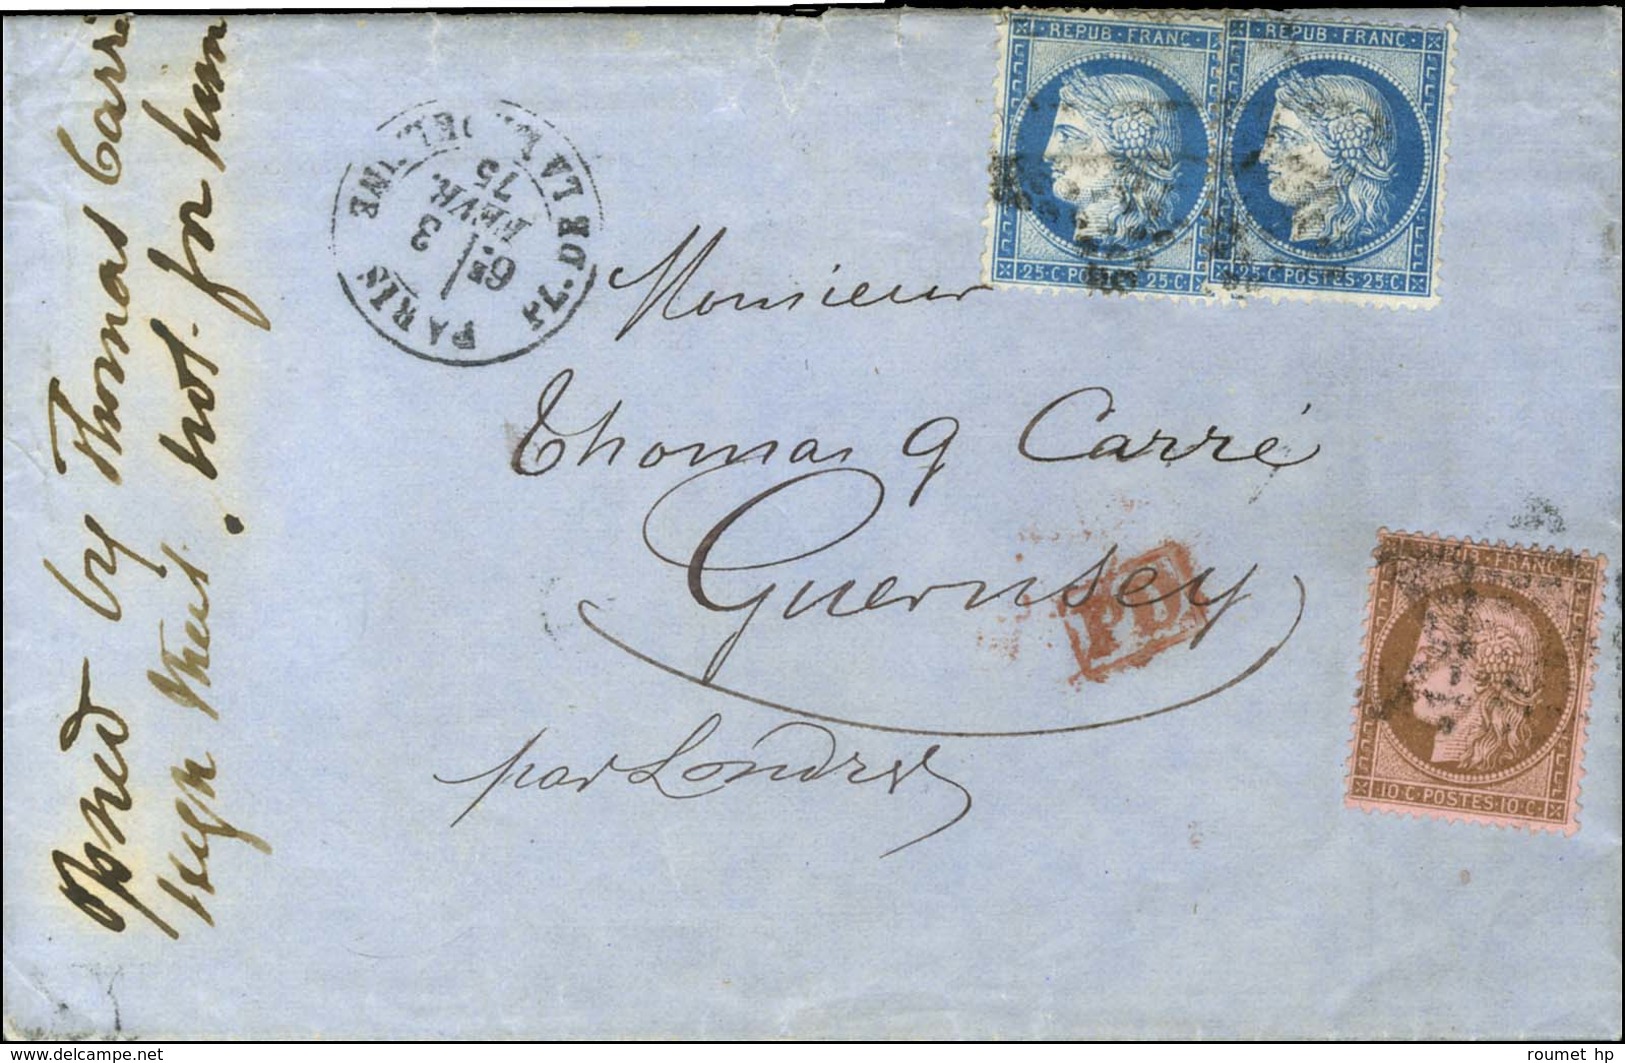 Opned by Thomas Carré
High Street. not for him
PARIS
PL. DE LA
6E
3
FEVR.
75
REPUB·FRANC
25·C·POSTES·25·C
REPUB·FRANC
25·C·POSTES·25·C
Monsieur
Thomas q Carré
Guernsey
PD
par Londres
REPUB·FRANC
10·C·POSTES·10·C
www.delcampe.net
roumet hp